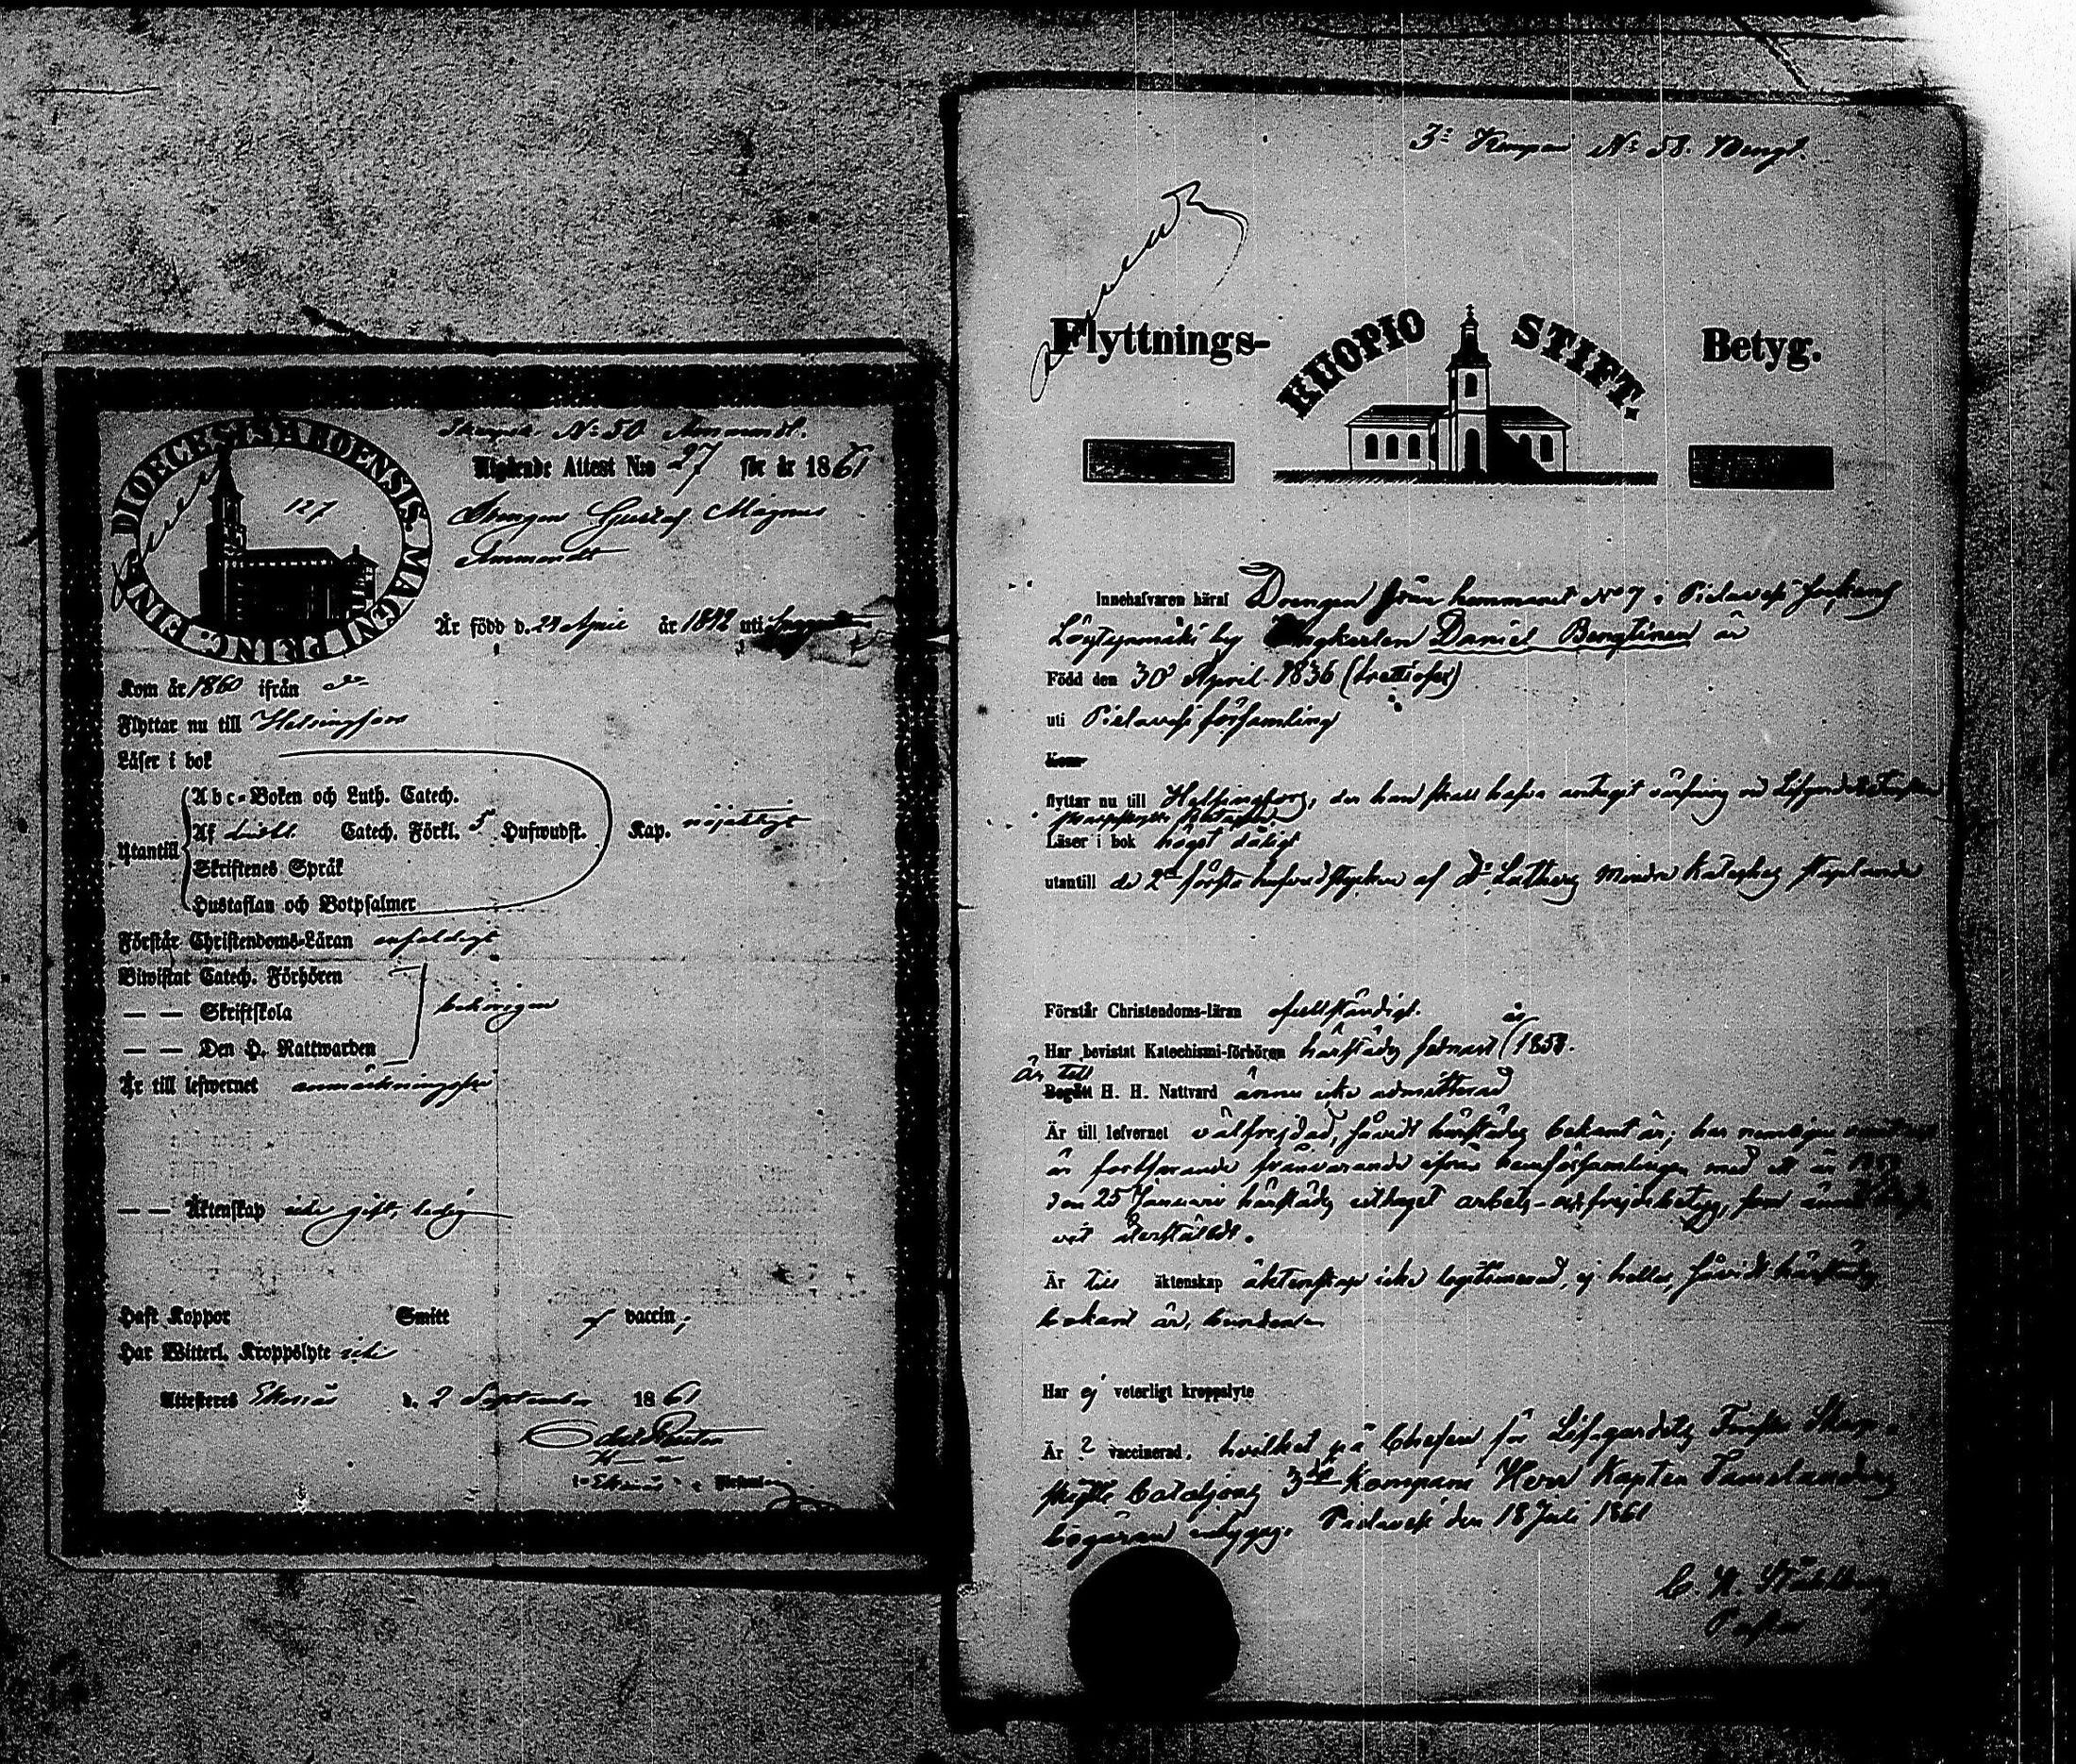 DIOECESIS ABOENSIS. MAGNI PRINC: FINL.
127
N:o 50 Ammondt.
Utgående Attest N:o 27 för år 1861
Drengen Gustaf Magnus
Ammondt
Är född d. 29 April år 1842 uti
Kom år 1860 ifrån
Flyttar nu till Helsingfors
Läser i bok
Abc-Boken och Luth. Catech.
Af Catech. Förkl. 5 Hufwudst. Kap. nöjaktigt
Utantill
Skriftenes Språk
Hustaflan och Botpsalmer
Förstår Christendoms-Läran enfaldigt
Biwistat Catech. Förhören
— — Skriftskola behörigen
— — Den H. Nattwarden
Är till lefwernet anmärkningsfri
— — Äktenskap icke gift, ledig
Haft Koppor Smitt vaccin;
Har Witterl. Kroppslyte icke
Attesteras Ekenäs d. 2 September 1861
i Ekenäs
3:e Kompani N:o 58. Bengt.
Flyttnings- KUOPIO STIFT. Betyg.
Innehafvaren häraf Drengen från hemmanet N:o 7 i Pielavesi Sockens
by Ungkarlen Daniel Bengtinen är
Född den 30 April 1836 (trettiosex)
uti Pielavesi församling
Kom
flyttar nu till Helsingfors, der han skall hafva antagit värfning vid Lifgardets Finska
Skarpskytte Bataljon
Läser i bok högst dåligt
utantill de 2ne första hufvudstycken af Dr Luthers Mindre Kateches
Förstår Christendoms-läran ofullständigt.
Har bevistat Katechismi-förhören härstädes sednast år 1858.
är till
Begått H. H. Nattvard ännu icke admitterad
Är till lefvernet välfrejdad, såvidt härstädes bekant är; har nemligen
är fortfarande frånvarande ifrån hemförsamlingen med ett år
den 25 Januarii härstädes uttaget arbets- och frejdebetyg, som ännu
återstäldt.
Är till äktenskap äktenskap icke legitimerad, ej heller, såvidt härstädes
bekant är, bunden
Har ej veterligt kroppslyte
Är vaccinerad, hvilket på Chefen för Lifgardets Finska Skarp-
skytte Bataljons 3dje Kompani Herr Kapten
begäran intygas. Pielavesi den 18 Juli 1861
Pastor